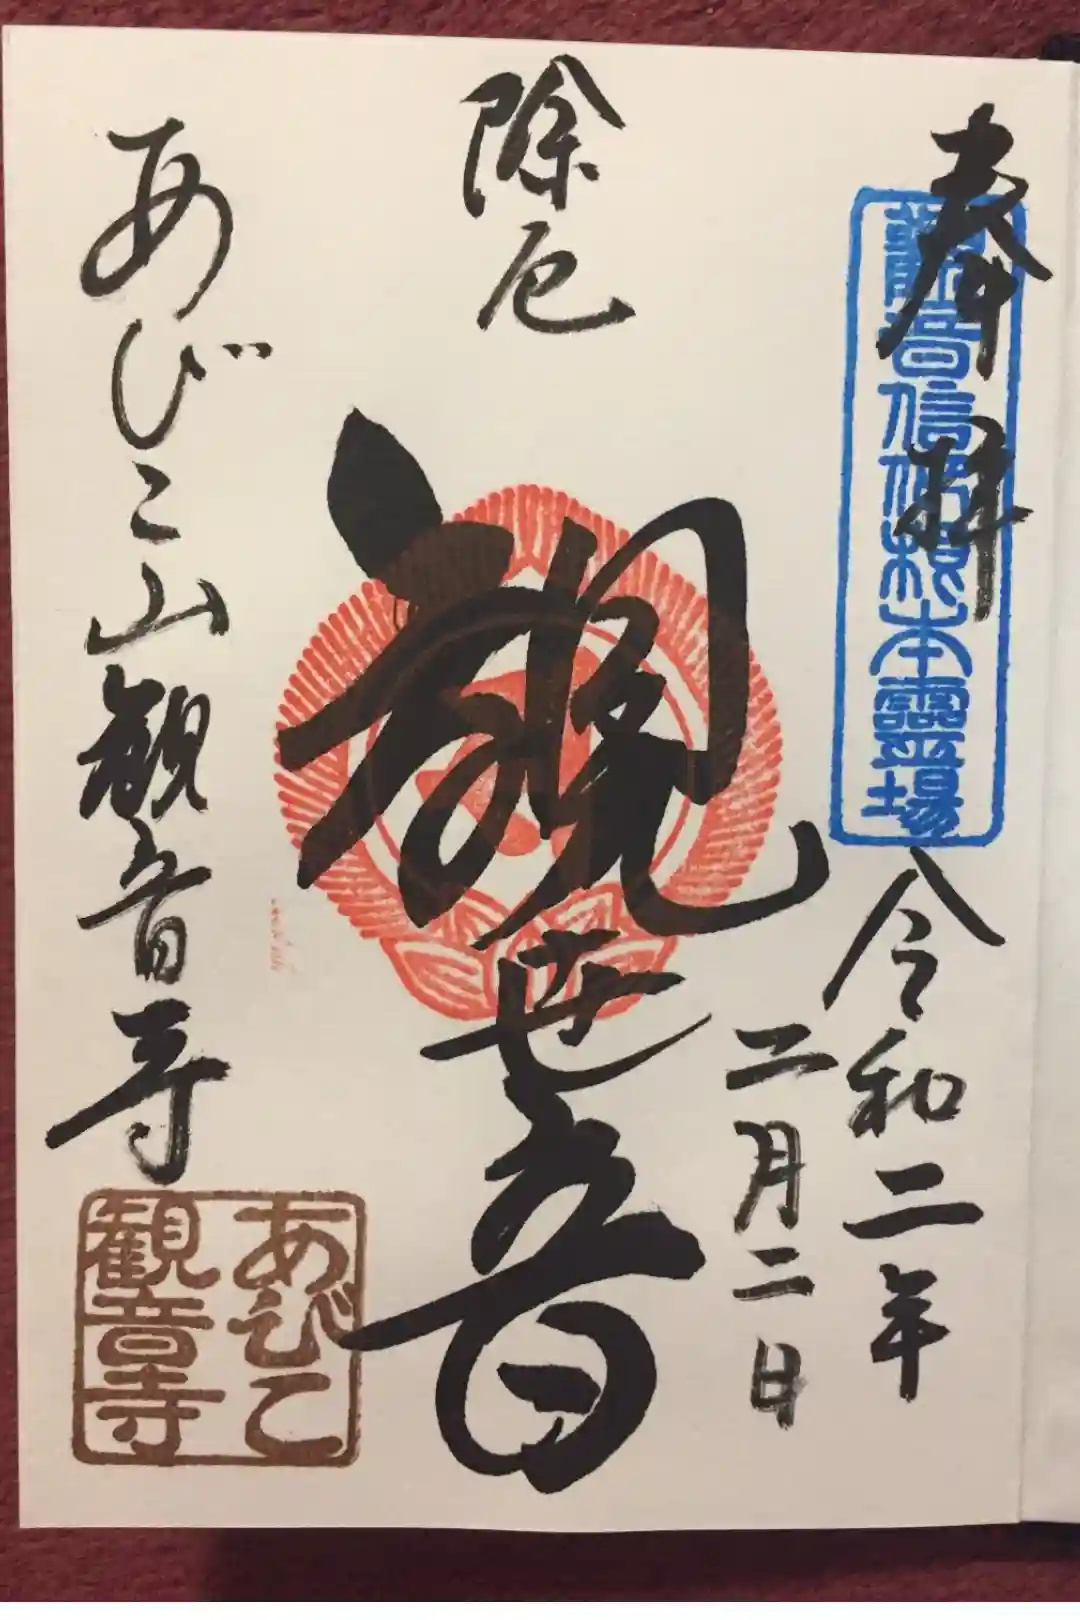 奉拝
観音信仰根本霊場
令和二年
二月二日
除厄
観世音
あびこ山観音寺
あびこ
観音寺